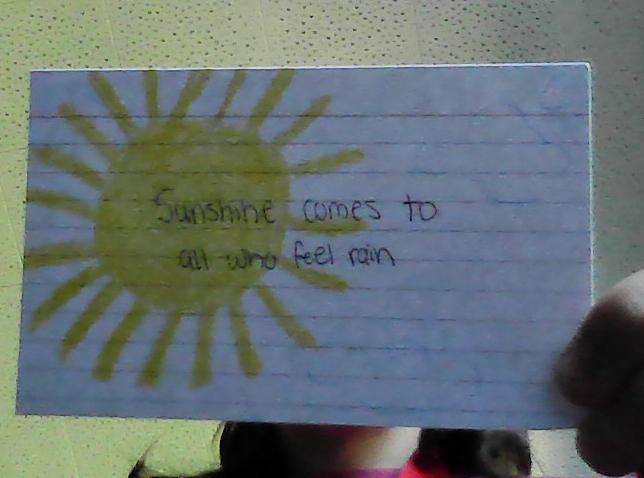 Sunshine comes to
all who feel rain